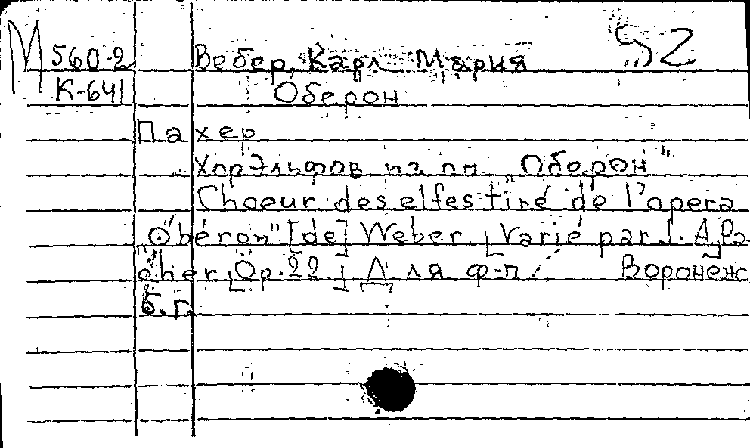 М 560-2 Вебер, Карл Мария 52
К-641 Оберон
Пахер
Хор эльфов из оп. "Оберон"
Choeur des elfes tiré de l'opera
"Obéron" [de] Weber. [Varié par J. A. Pa
cher, Op. 22.] Для ф-п. Воронеж
б. г.